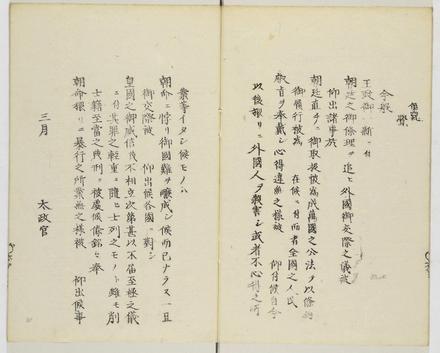 今般
王政御一新ニ付
朝廷之御條理ヲ追ヒ外國御交際之儀被
仰出諸事於
朝廷直チニ御取扱被為成萬國之公法ヲ以條約
御履行被為 在候ニ付而者全國之人民
叡旨ヲ奉戴シ心得違無之様被 仰付候自今
以後猥リニ外國人ヲ殺害シ或者不心得之所
業等イタシ候モノハ
朝命ニ悖リ御國難ヲ醸成シ候而已ナラス一旦
御交際被 仰出候各國ニ對シ
皇國之御威信モ不相立次第甚以不届至極之儀
ニ付其罪之輕重ニ隨ヒ士列之モノト雖モ削
士籍至當之典刑ニ被處候條銘々奉
朝命猥リニ暴行之所業無之様被 仰出候事
三月 太政官